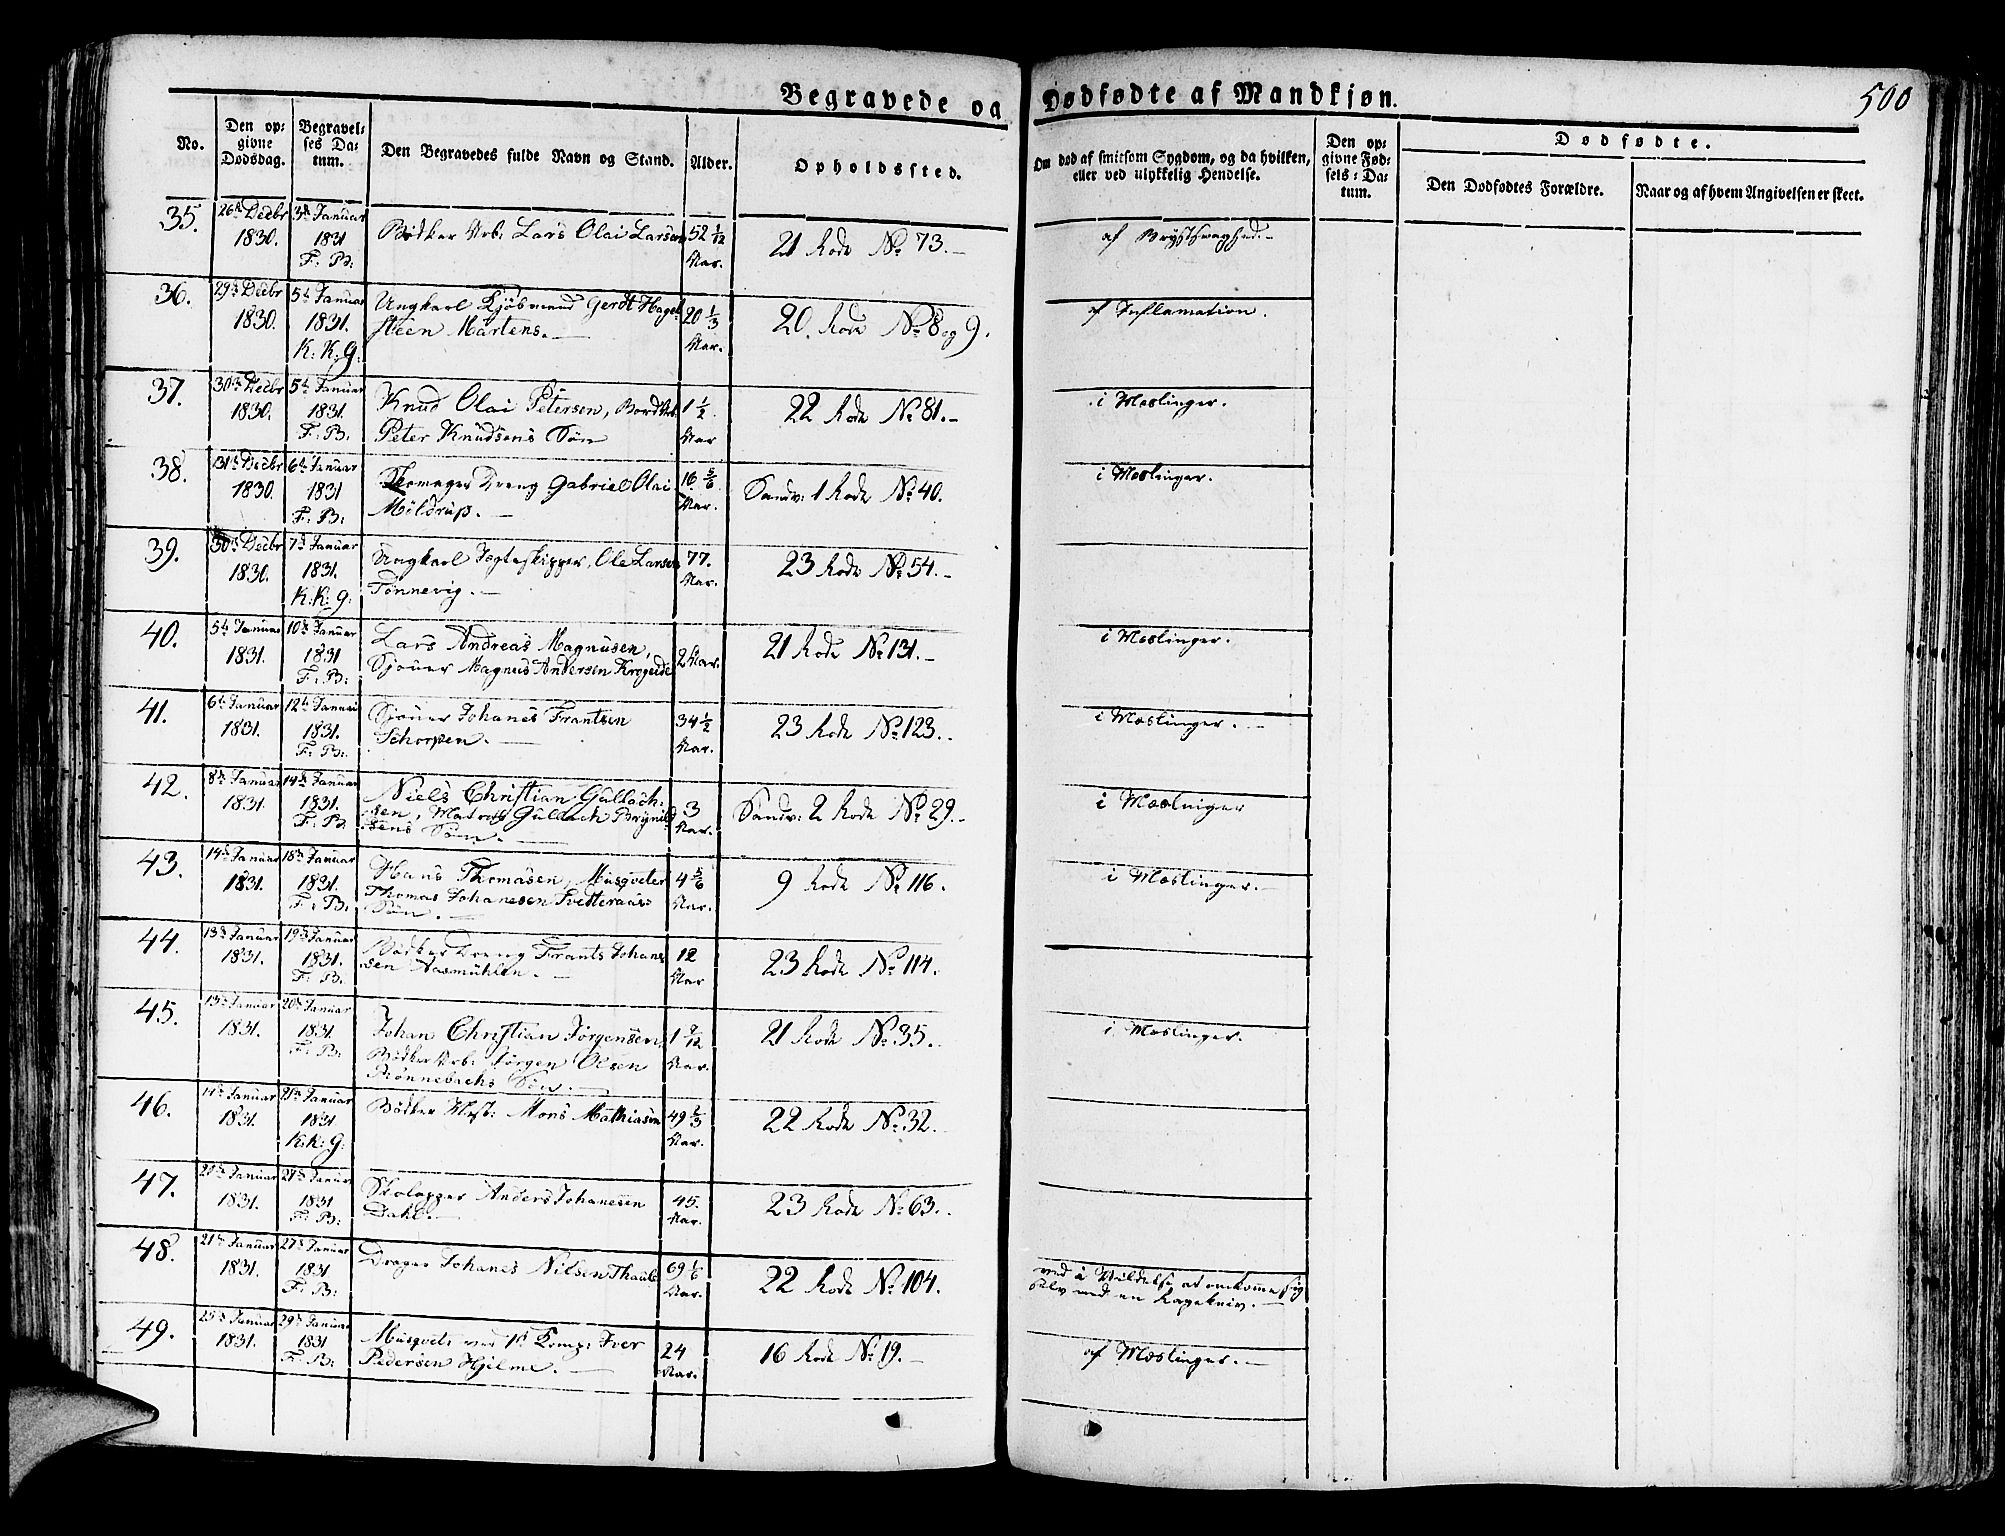 Begravede og Dødfødte af Mandkjøn. 500
No.
Den op=
givne
Dødsdag.
Begravel=
ses Da=
tum.
Den Begravedes fulde Navn og Stand.
Alder.
Opholdssted.
Om død af smitsom Sygdom, og da hvilken,
eller ved ulykkelig Hendelse.
Den op=
givne Fød=
sels=Da=
tum.
Dødfødte.
Den Dødfødtes Forældre.
Naar og af hvem Angivelsen er skeet.
35. 26de Decbr 1830. 3de Januar 1831 F: B: Bødker Arb: Lars Olai Larsen 52 1/12 Aar. 21 Rode No 73.- af Brystsvaghed.-
36. 29de Decbr 1830. 5te Januar 1831. K: K: G: Ungkarl Kjøbmand Gerdt Hagel
steen Martens.- 20 1/3 Aar. 20. Rode No 8 og 9. af Inflamation.
37. 30te Decbr 1830. 5te Januar 1831. F: B: Knud Olai Petersen, Bordkl.
Peter Knudsens Søn 1 1/2 Aar 22 Rode No 81.- i Mæslinger.
38. 31te Decbr 1830. 6te Januar 1831 F: B: Skomager Dreng Gabriel Olai
Møldrup.- 16 5/6 Aar. Sandv: 1 Rode No 40. i Mæslinger.
39. 30te Decbr 1830. 7de Januar 1831. K: K: G: Ungkarl Jagteskipper, Ole Larsen
Tønnevig.- 77. Aar. 23 Rode No 54.-
40. 5te Januar 1831. 10de Januar 1831 F: B: Lars Andreas Magnusen,
Sjouer Magnus Andersen Krogeide 2 Aar. 21 Rode No 131.- i Mæslinger.
41. 6te Januar 1831. 12te Januar 1831. F: B: Sjouer Johanes Frantsen
Schorpen.- 34 1/2 Aar. 23 Rode No 123.- i Mæslinger.-
42. 8de Januar 1831. 14de Januar 1831. F: B: Niels Christian Gullach=
sen, Matros Gullach Brynild
sens Søn.- 3 Aar. Sandv: 2 Rode No 29.- i Mæslinger
43. 14de Januar 1831. 18de Januar 1831. F: B: Hans Thomasen, Musqveter
Thomas Johanesen Tvetteraas=
Søn.- 4 5/6 Aar. 9 Rode No 116. i Mæslinger.-
44. 13de Januar 1831. 19de Januar 1831. F: B: Bødker Dreng Frants Johan
sen Aasmühlen.- 12 Aar 23 Rode No 114.
45. 13de Januar 1831. 20de Januar 1831. F: B: Johan Christian Jørgensen,
Bødker Arb: Jørgen Olsen
Rønnebachs Søn.- 1 9/12 Aar. 21 Rode No 35. i Mæslinger.
46. 14de Januar 1831. 21de Januar 1831 K: K: G: Bødker Mons Mathiasen 49 2/3 Aar. 22 Rode No 32.
47. Januar 1831. Januar 1831 F: B: Anders Johanesen
Dahl.- 45. Aar. 23 Rode No 63.
48. 21de Januar 1831. 27de Januar 1831 F: B: Drager Johanes Nilsen Thaule 69 1/6 Aar. 22 Rode No 104. ved i Vildelse at omkomme sig
selv med en Kniv.-
49. 25de Januar 1831. 29de Januar 1831 F: B: Musqvet: ved 1ste Komp: Iver
Pedersen Hjelme.- 24 Aar. 16 Rode No 19.- af Mæslinger.-